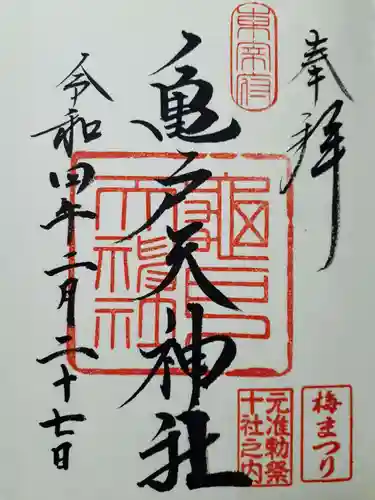 奉拝
東宰府
亀戸天神社
龜戸
天神社
令和四年二月二十七日
梅まつり
元准勅祭
十社之内